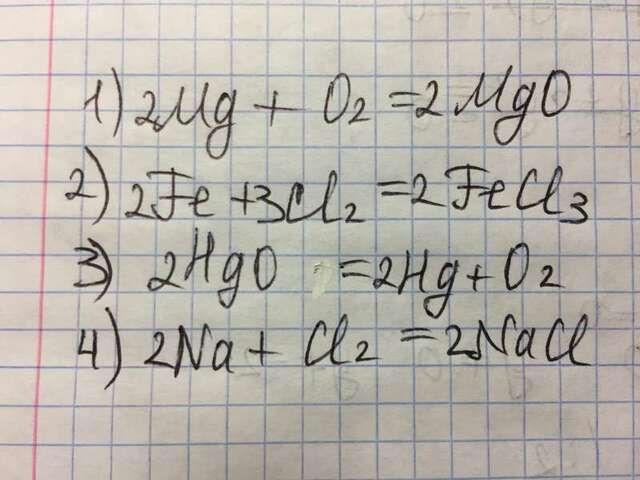 1) 2Mg + O2 = 2MgO
2) 2Fe + 3Cl2 = 2FeCl3
3) 2HgO = 2Hg + O2
4) 2Na + Cl2 = 2NaCl